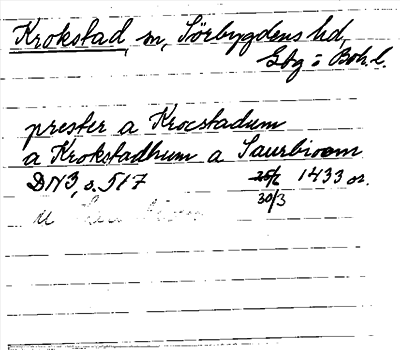 Krokstad sn, Sörbygdens hd,
Gbg o Boh. l.
prester a Krocstadum
a Krokstadhum a Saurbiom
DN 3, s. 517 25/6 1433 or.
30/3